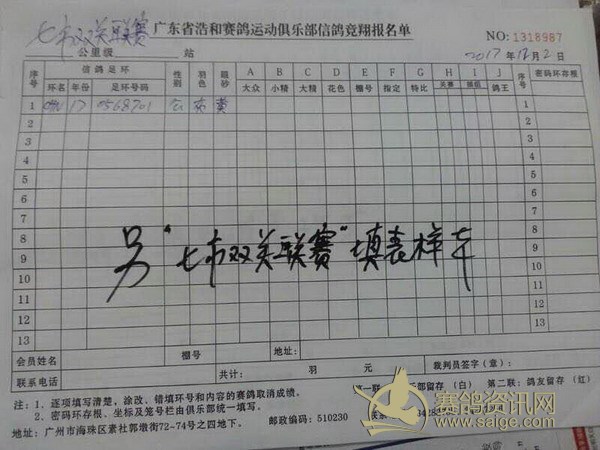 七市双关联赛 广东省浩和赛鸽运动俱乐部信鸽竞翔报名单 NO:1318987
公里级 站 2017年12月2日
序号 信鸽足环 性别 羽色 眼砂 A B C D E F G H I J 序号 密码环存根
环名 年份 足环号码 大众 小精 大精 花色 棚号 指定 特比 关赛 鸽王
1 17 0568701 黄 1
2 2
3 3
4 4
5 5
6 6
7 7
8 8
9 9
10 10
11 11
12 12
13 13
另"七市双关联赛"填表样本
会员姓名 棚号 地址:
联系电话 共计: 羽 元 裁判员签字(章):
注:1、逐项填写清楚,涂改、错填环号和内容的赛鸽取消成绩。 留存(白) 第二联:鸽友留存(红)
2、密码环存根、坐标及笼号栏由俱乐部统一填写。
地址:广州市海珠区素社郭墩街72-74号之四地下。 邮政编码:510230
赛鸽资讯网
www.saige.com